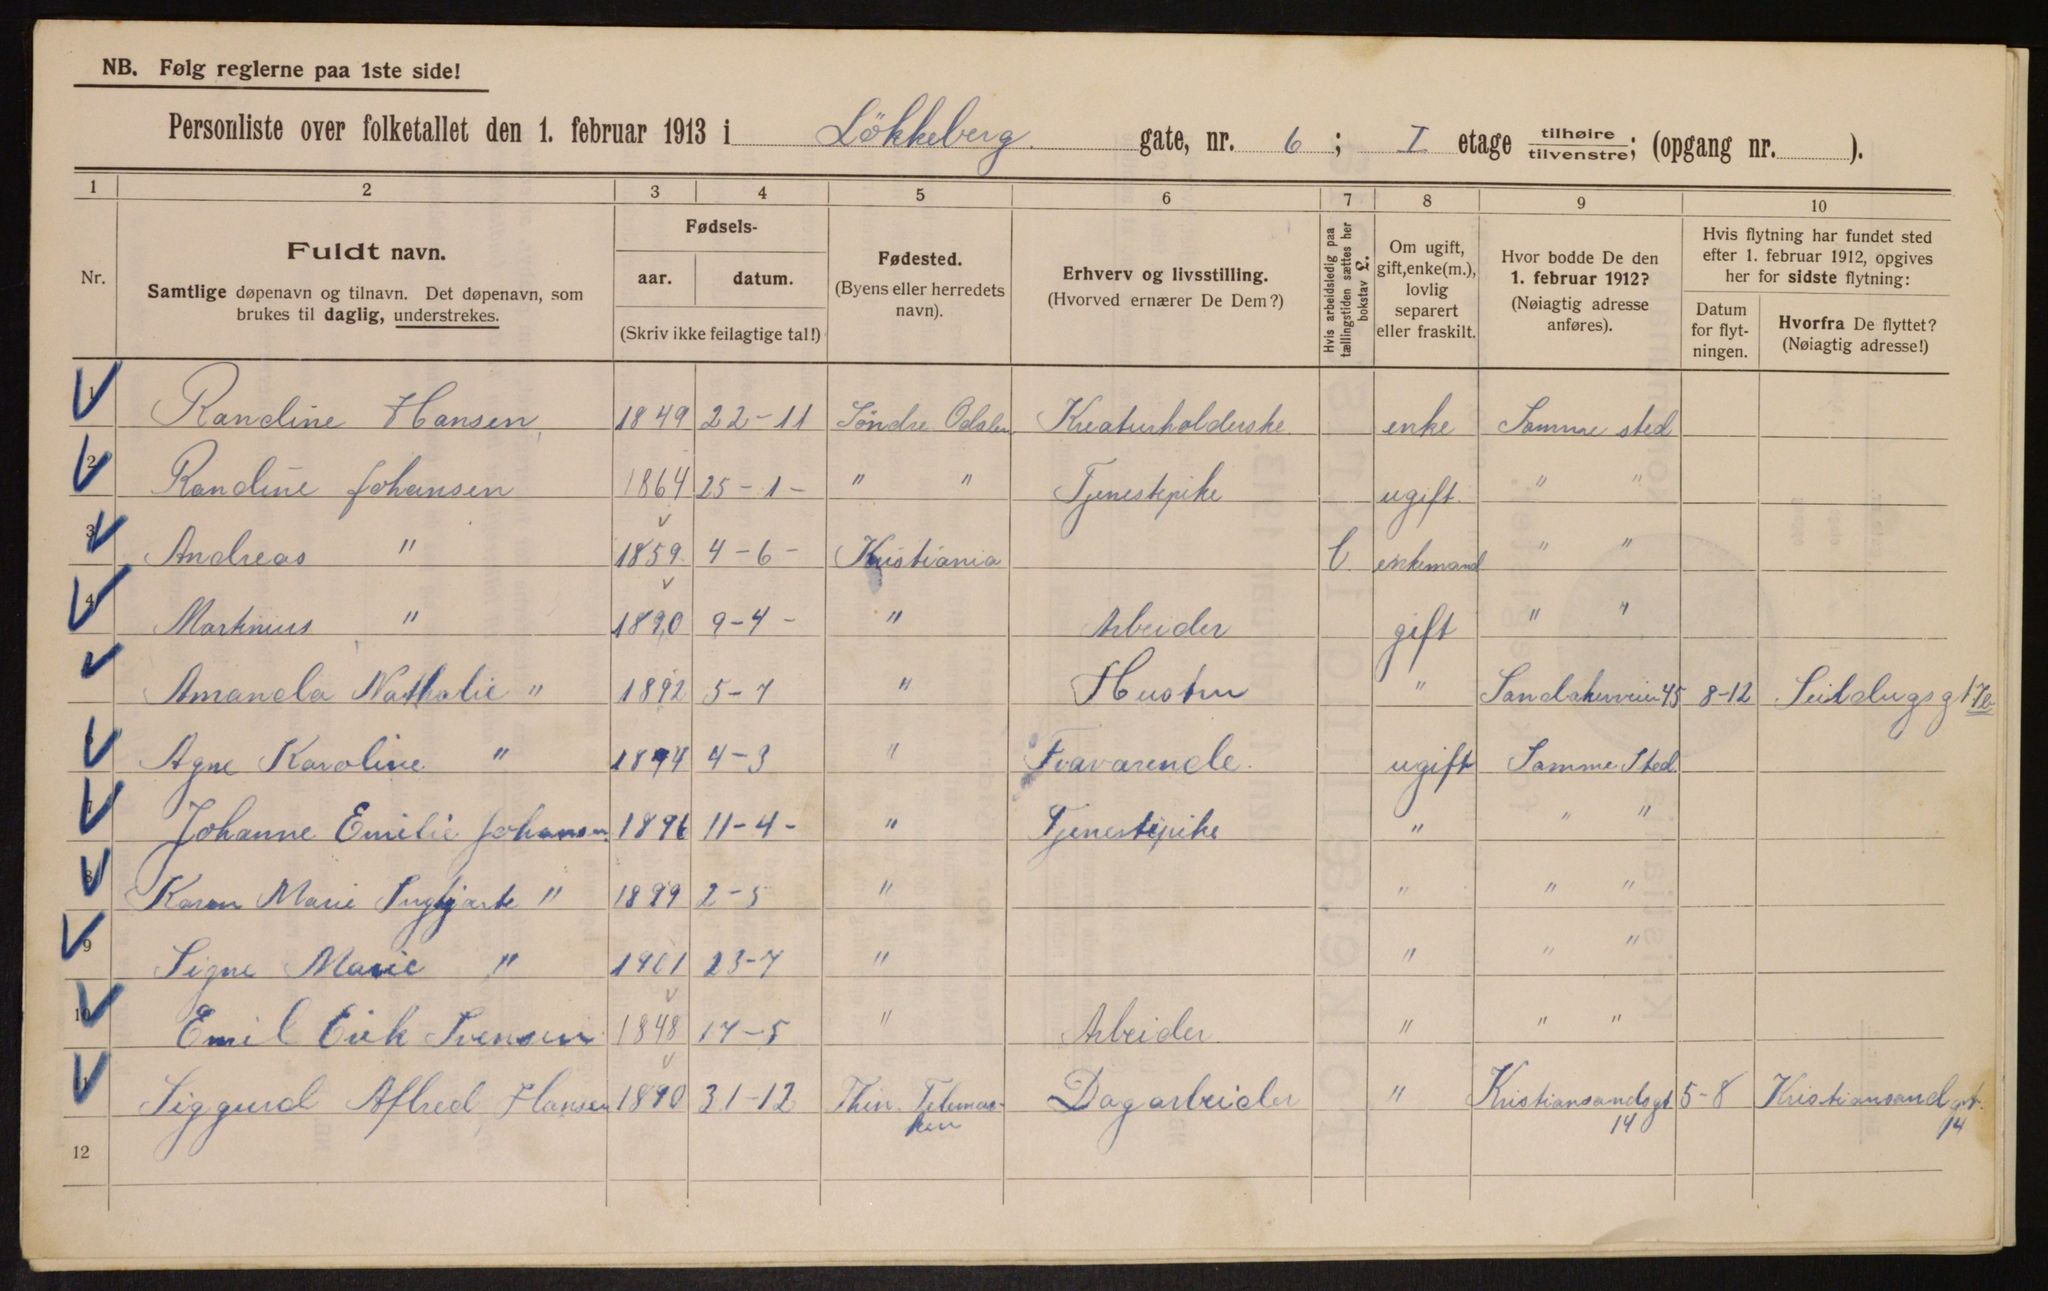 NB. Følg reglerne paa 1ste side!
Personliste over folketallet den 1. februar 1913 i Løkkeberg gate, nr. 6 ; I etage tilhøire tilvenstre; (opgang nr. ).
1 2 3 4 5 6 7 8 9 10
Nr.
Fuldt navn.
Samtlige døpenavn og tilnavn. Det døpenavn, som
brukes til daglig, understrekes.
Fødsels-
aar. datum.
(Skriv ikke feilagtige tal!)
Fødested.
(Byens eller herredets
navn).
Erhverv og livsstilling.
(Hvorved ernærer De Dem?)
Hvis arbeidsledig paa
tællingstiden sættes her
bokstav L.
Om ugift,
gift, enke(m.),
lovlig
separert
eller fraskilt.
Hvor bodde De den
1. februar 1912?
(Nøiagtig adresse
anføres).
Hvis flytning har fundet sted
efter 1. februar 1912, opgives
her for sidste flytning:
Datum
for flyt-
ningen.
Hvorfra De flyttet?
(Nøiagtig adresse!)
1 Randine Hansen 1849 22-11 Søndre Odalen Kreaturholderske enke Samme sted
2 Randine Johansen 1864 25-1- " " Tjenestepike ugift. " "
3 Andreas " 1859. 4-6- Kristiania L enkemand " "
4 Martinius " 1890 9-4- " Arbeider gift " "
Amanda Nathalie " 1892 5-7 " Hustru " Sandakerveien 45 8-12
6 Agne Karoline " 1894 4-3 " ugift Samme Sted
7 Johanne Emilie Johansen 1896 11-4- " Tjenestepike " " "
8 Karen Marie " 1899 2-5 " " " "
9 Signe Marie " 1901 23-7 " " " "
10 Emil Erik Svensen 1848 17-5 " Arbeider " " "
Siggurd Alfred Hansen 1890 31-12 Telemar-
ken Dagarbeider " Kristiansandsgt 14 5-8 Kristiansand gt. 14
12